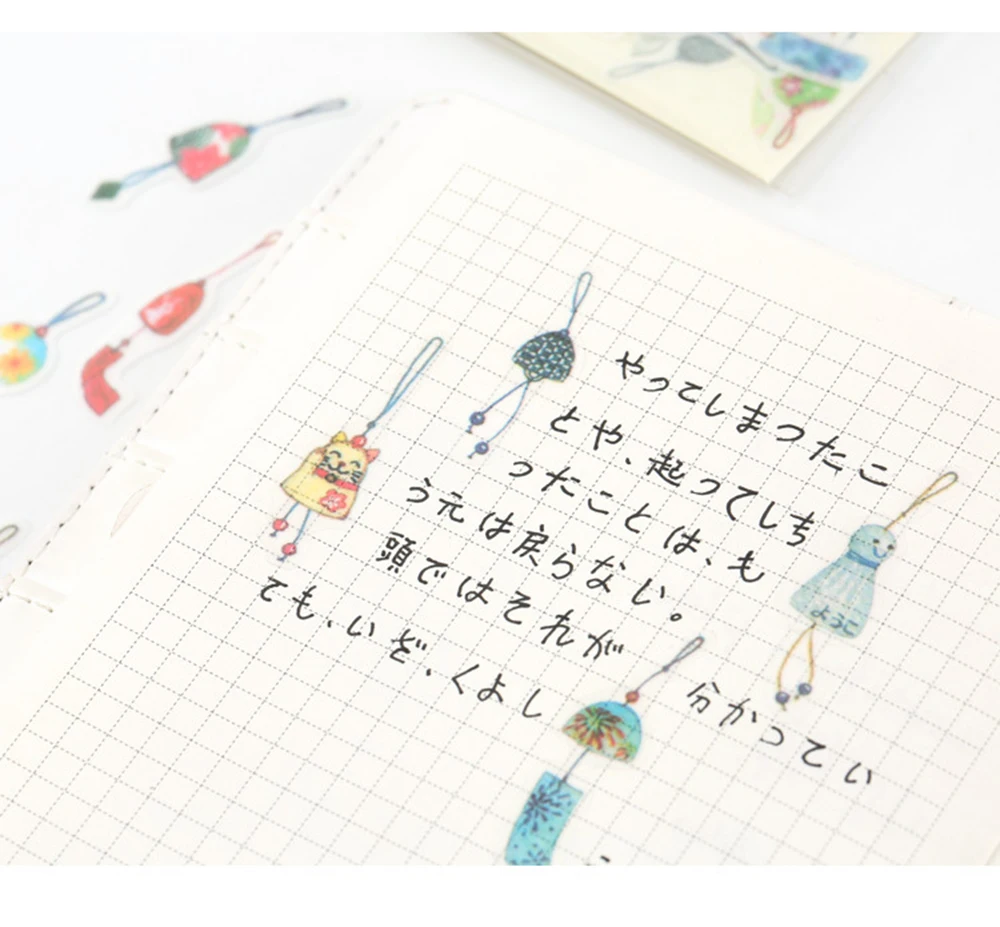 やってしまったこ
とや、起ってしち
ったことは、も
う元は戻らない。
頭ではそれが
分かってい
ても、いざ、くよし
ようこ